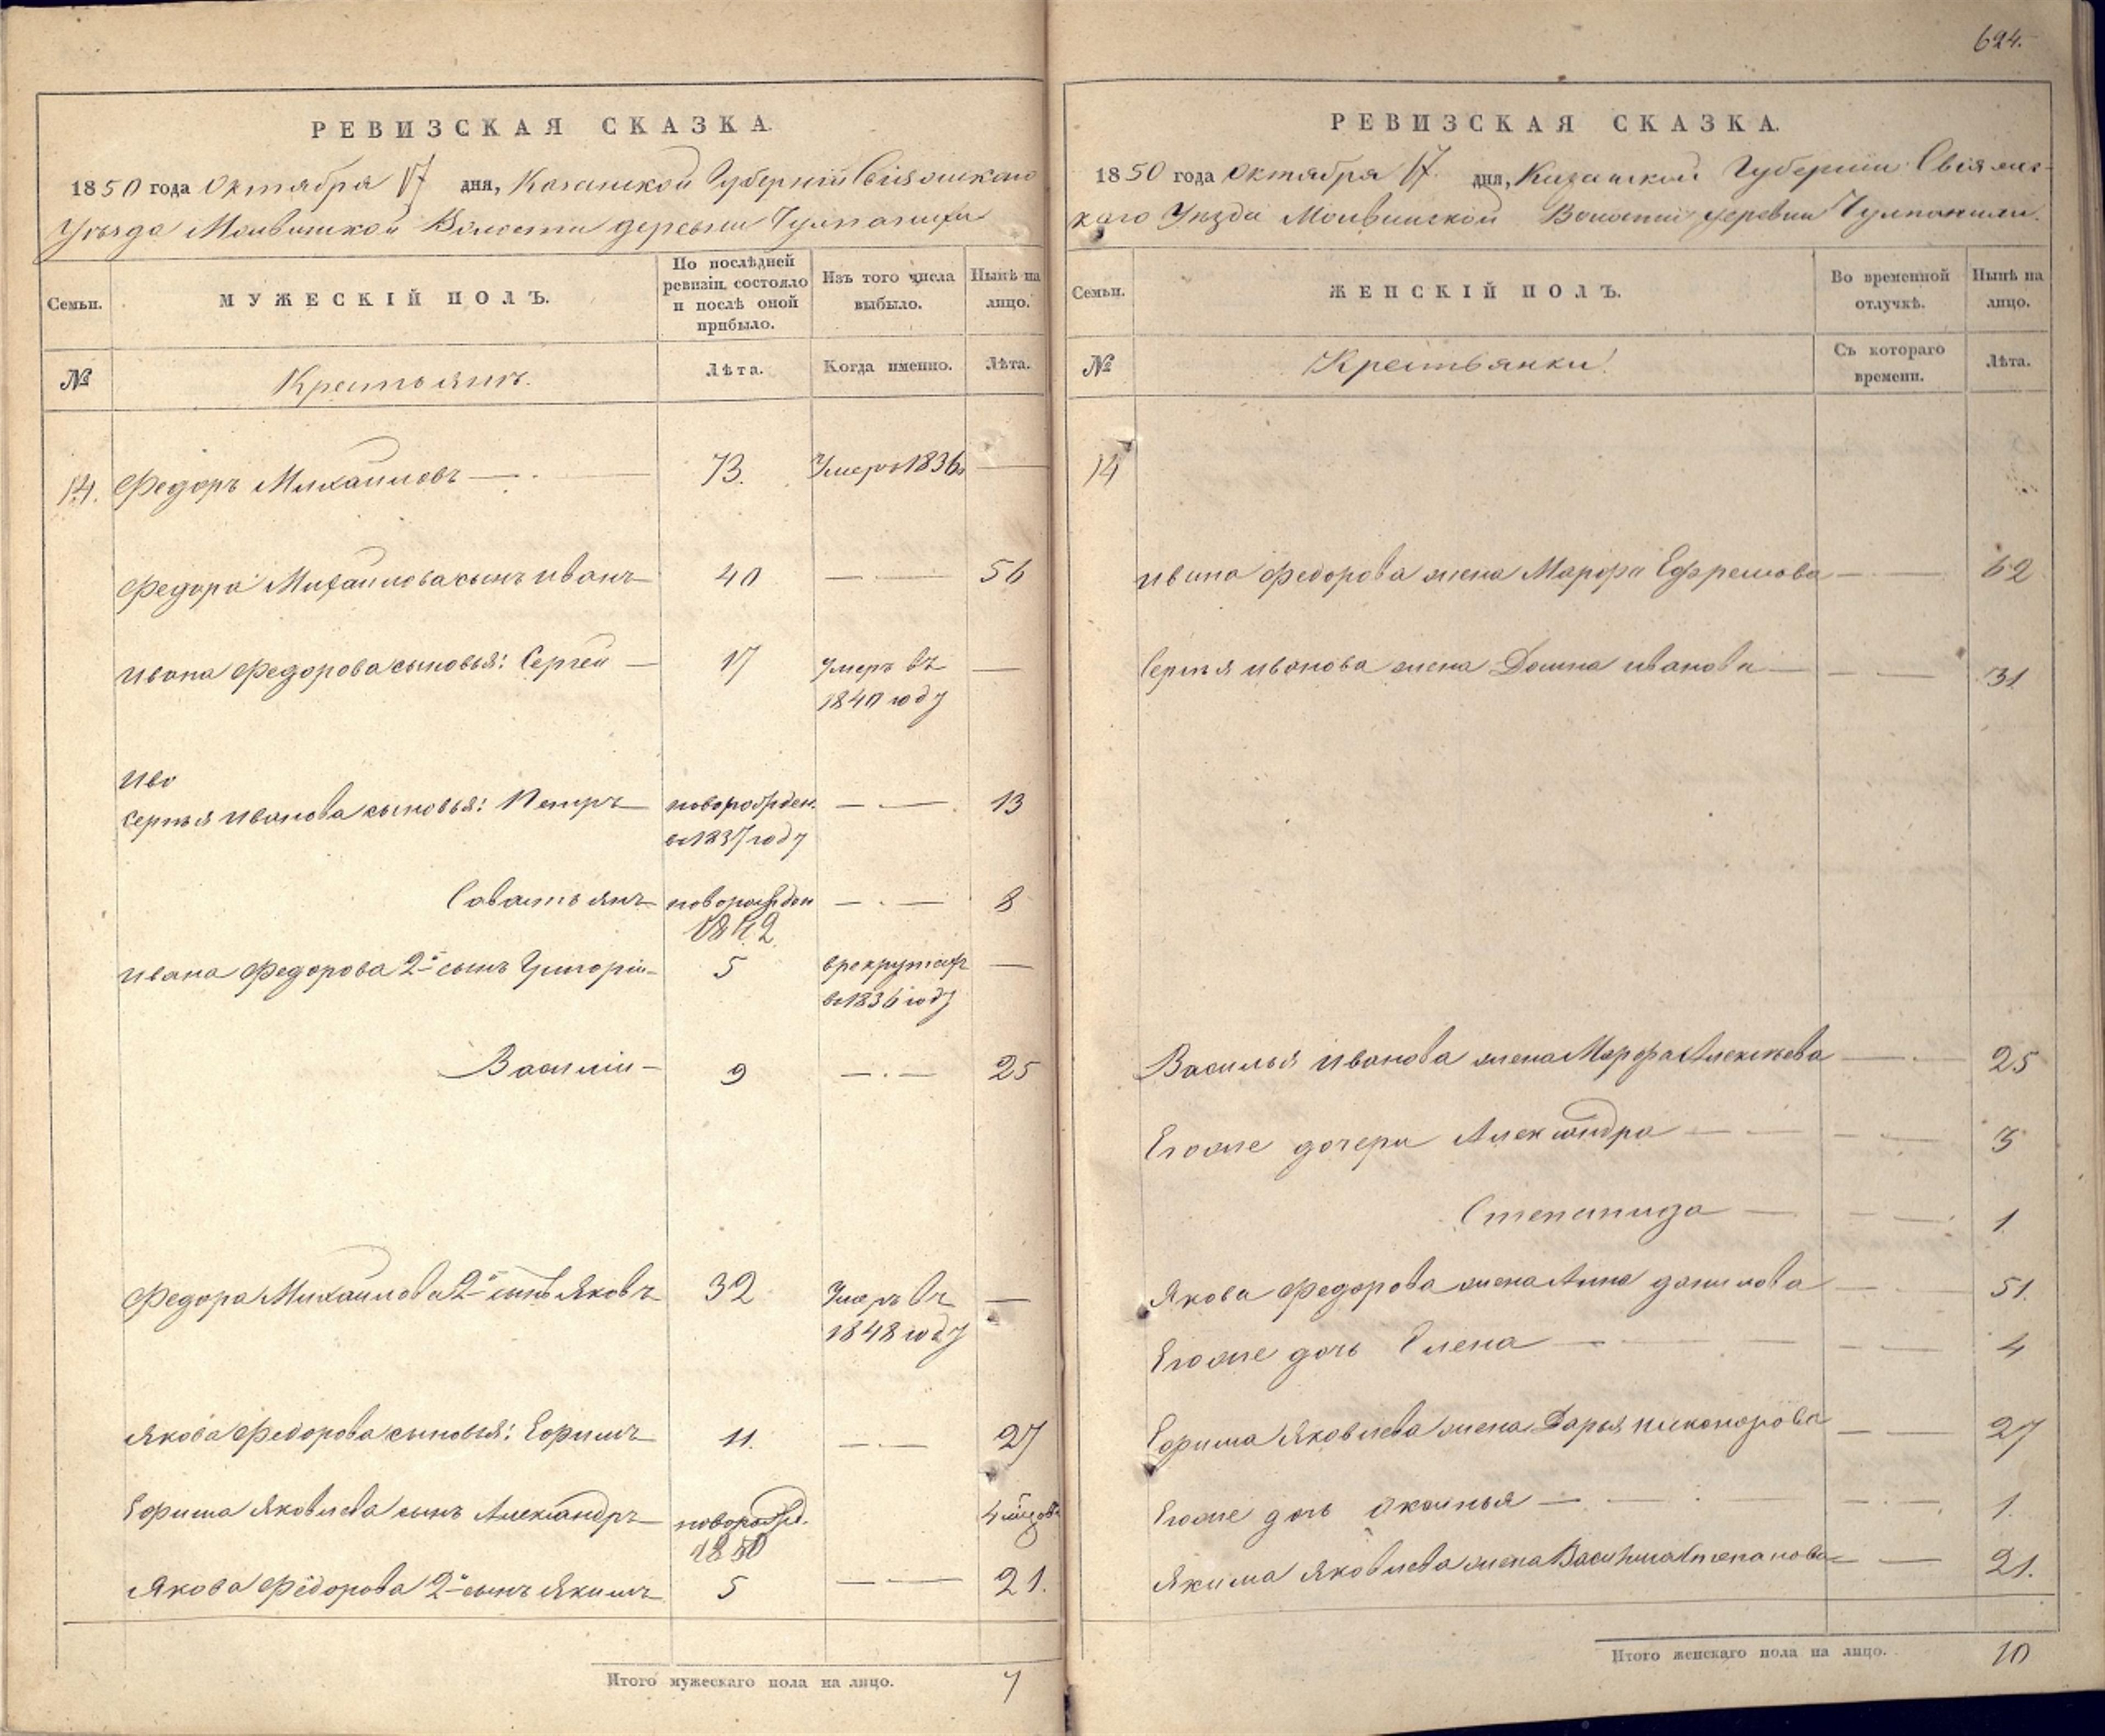 РЕВИЗСКАЯ СКАЗКА.
1850 года Октября 17 дня, Казанской Губернiи Свiяжскаго
Уѣзда Молвинской Волости деревни
Семьи.
МУЖЕСКIЙ ПОЛЪ.
По послѣдней
ревизiи состояло
и послѣ оной
прибыло.
Изъ того числа
выбыло.
Нынѣ на
лицо.
№
Крестьянъ.
Лѣта.
Когда именно.
Лѣта.
14. Федоръ Михаиловъ — 73. Умеръ 1836 —
Федора Михаилова сынъ Иванъ 40 — 56
Ивана Федорова сыновья: Сергей — 17 Умеръ въ —
1840 году
Иво
Сергѣя Иванова сыновья: Петръ новорожден. — 13
въ 1837 году
Савастьянъ новорожден — 8
1842
Ивана Федорова 2й сынъ Григорiй 5 в рекрутахъ —
въ 1836 году
Василiй — 9 — 25
Федора Михаилова 2й сынъ Яковъ 32 Умеръ въ —
1848 году
Якова Федорова сыновья: Ефимъ 11. — 27
Ефима Яковлева сынъ Александръ новорожд. 4 мѣсяцовъ
1850
Якова Федорова 2й сынъ Якимъ 5 — 21.
Итого мужескаго пола на лицо. 7
624.
РЕВИЗСКАЯ СКАЗКА.
1850 года Октября 17 дня, Казанской Губернiи Свiяжс-
каго Уѣзда Молвинской Волости деревни
Семьи.
ЖЕНСКIЙ ПОЛЪ.
Во временной
отлучкѣ.
Нынѣ на
лицо.
№
Крестьянки
Съ котораго
времени.
Лѣта.
14
Ивана Федорова жена Марфа Ефремова — 62
Сергѣя Иванова жена Домна Иванова — 31
Василья Иванова жена Марфа Алексѣева — 25
Егоже дочери Александра — 3
Степанида — 1
Якова Федорова жена Анна Данилова — 51.
Егоже дочь Елена — 4
Ефима Яковлева жена Дарья Никонорова — 27
Егоже дочь — 1.
Якима Яковлева жена Васи Степанова — 21.
Итого женскаго пола на лицо. 10